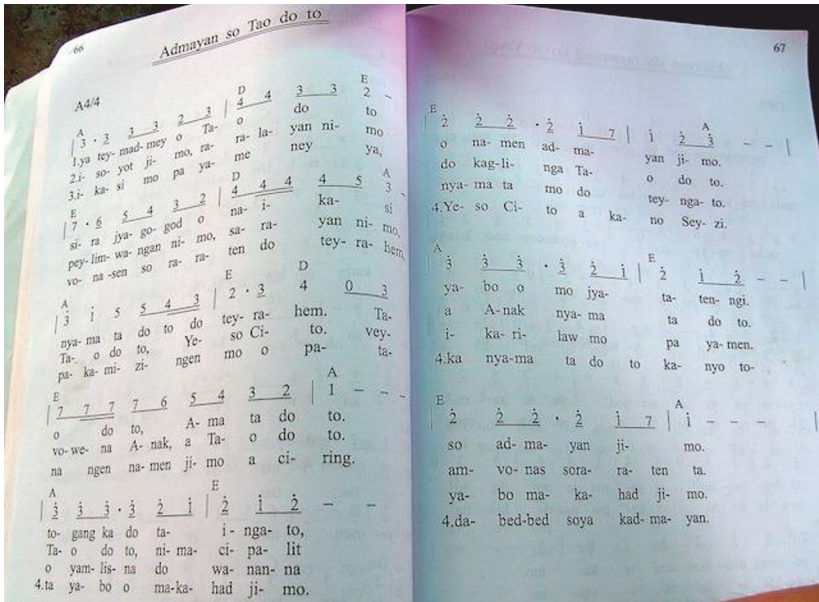 66
Admayan so Tao do to
A4/4
A D E
| 3 · 3 3 3 2 3 | 4 4 3 3 2 –
1.ya tey- mad- mey o Ta- o do to
2.i- so- yot ji- mo, ra- ra- la- yan ni- mo
3.i- ka- si mo pa ya- me ney ya,
E D A
| 7 · 6 5 4 3 2 | 4 4 4 4 5 3 –
si- ra jya- go- god o na- i- ka- si
pey- lim- wa- ngan ni- mo, sa- ra- yan ni- mo,
vo- na -sen so ra- ra- ten do tey- ra- hem,
A E D
| 3 i 5 5 4 3 | 2 · 3 4 0 3
nya- ma ta do to do tey- ra- hem. Ta-
Ta- o do to, Ye- so Ci- to. vey-
pa- ka- mi- zi- ngen mo o pa- ta-
E A
| 7 7 7 7 6 5 4 3 2 | 1 – – –
o do to, A- ma ta do to.
vo- we- na A- nak, a Ta- o do to.
na ngen na- men ji- mo a ci- ring.
A E
| 3 3 3 · 3 2 i | 2 i 2 – –
to- gang ka do ta- i - nga- to,
Ta- o do to, ni- ma- ci- pa- lit
o yam- lis- na do wa- nan- na
4.ta ya- bo o ma-ka- had ji- mo.
67
E A
| 2 2 2 · 2 i 7 | i 2 3 – – |
o na- men ad- ma- yan ji- mo.
do kag-li- nga Ta- o do to.
nya- ma ta mo do tey- nga- to.
4.Ye- so Ci- to a ka- no Sey- zi.
A E
| 3 3 3 · 3 2 i | 2 i 2 – – |
ya- bo o mo jya- ta- ten- ngi.
a A-nak nya- ma ta do to.
i- ka- ri- law mo pa ya- men.
4.ka nya-ma ta do to ka- nyo to-
E A
| 2 2 2 · 2 i 7 | i – – – |
so ad- ma- yan ji- mo.
am- vo- nas sora- ra- ten ta.
ya- bo ma- ka- had ji- mo.
4.da- bed-bed soya kad- ma- yan.